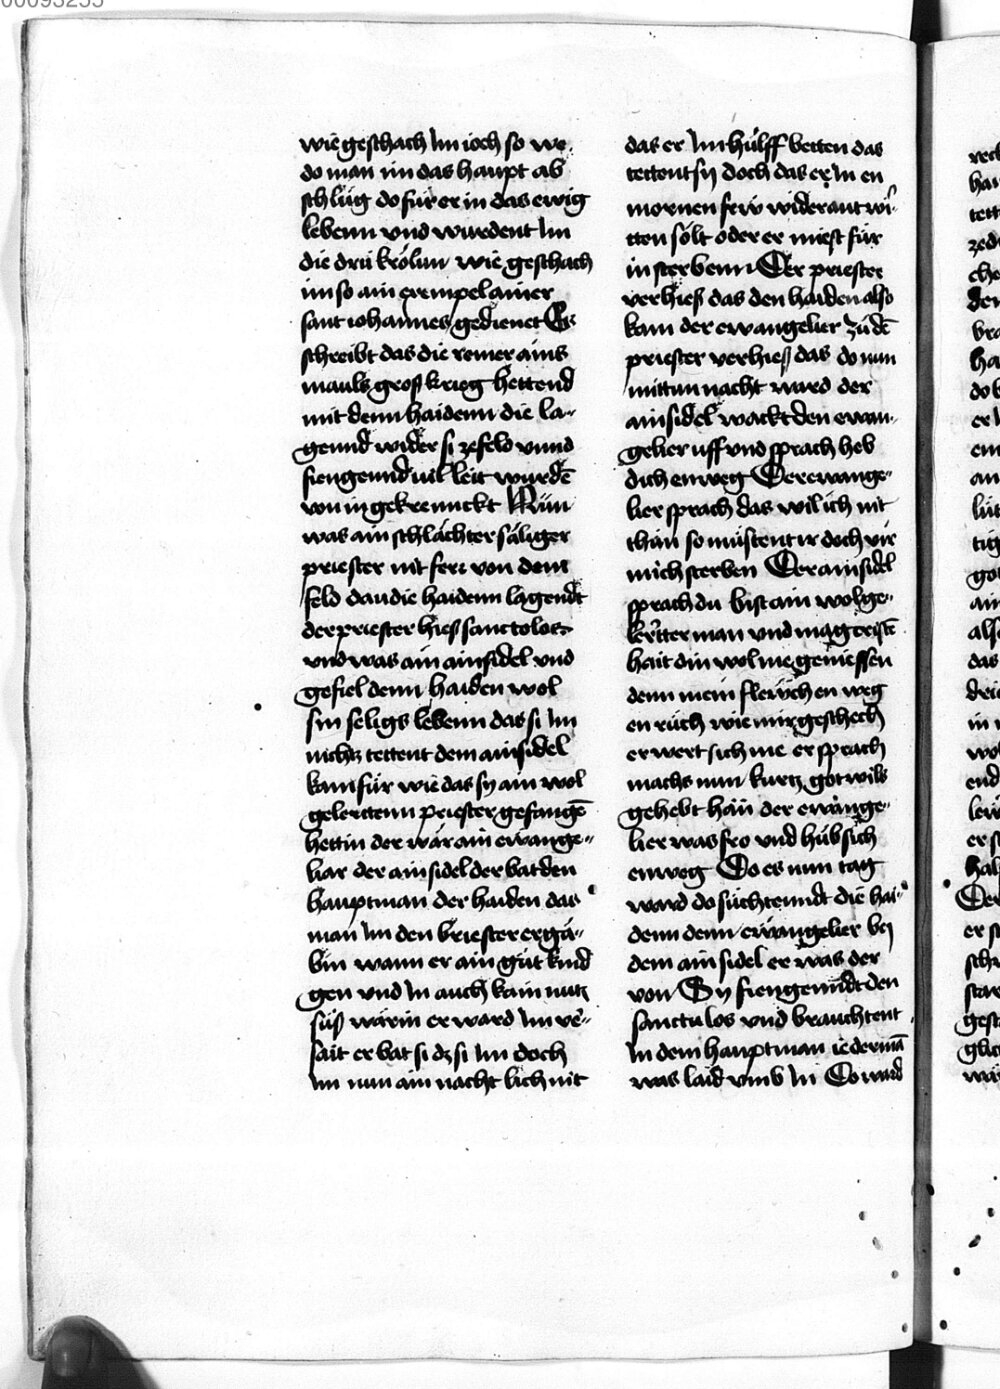 00093255
wie geschach Im ioch so we
do man im das haupt ab
schlüg do für er in das ewig
lebenn vnd wurdent Im
die drü krölun wie geschach
im so ain exempel ainer
sant iohannes gedienet Es
schreibt das die remer ains
mauls gross krieg hettend
mit denn haidenn die la-
gennd wider si ze feld vnnd
fiengennd vil leit wurdē
von in gekrennckt Nun
was ain schlächter säliger
priester nit ferr von dem
feld dau die haidenn lagendt
der priester hiess sanctolos
vnd was ain ainsidel vnd
gefiel denn haiden wol
sin seligs lebenn das si Im
nichtz tettent dem ainsidel
kam für wie das sy ain wol
gelerttenn priester gefangē
hettin der wär ain ewange-
liar der ainsidel der bat den
hauptman der haiden das
man Im den briester ergä-
bin wann er ain güt kind
gen vnd In auch kain nutz
süss wärin er ward Im ve-
sait er bat si dz si Im doch
Im nun ain nacht lichnit
das er Im hülff betten das
tettent sy doch das er In en
mornen frw wider antwi-
tten sölt oder er miest für
in sterbenn Der priester
verhiess das den haiden also
kam der ewangelier zü dē
priester verhiess das do nun
mittun nacht ward der
ainsidel wackt den ewan-
gelier uff vnd sprach heb
dich enweg Der ewange-
lier sprach das wil ich nit
thän so müstent ir doch vir
mich sterben Der ainsidel
sprach du bist ain wol ge-
lertter man vnd mag cristē
hait din wol me geniessen
denn mein flewch en weg
en rüch wie mir geschech
er wert sich me er sprach
machs nun kurtz got wils
gehebt hän der ewange-
lier was fro vnd hüb sich
enweg Do es nun tag
ward do süchtenndt die hai-
denn denn ewangelier bey
dem ainsidel er was der
von Sy fiengenndt den
sanctulos vnd brauchtent
In dem hauptman iedermā
was laid vmb In Do ward